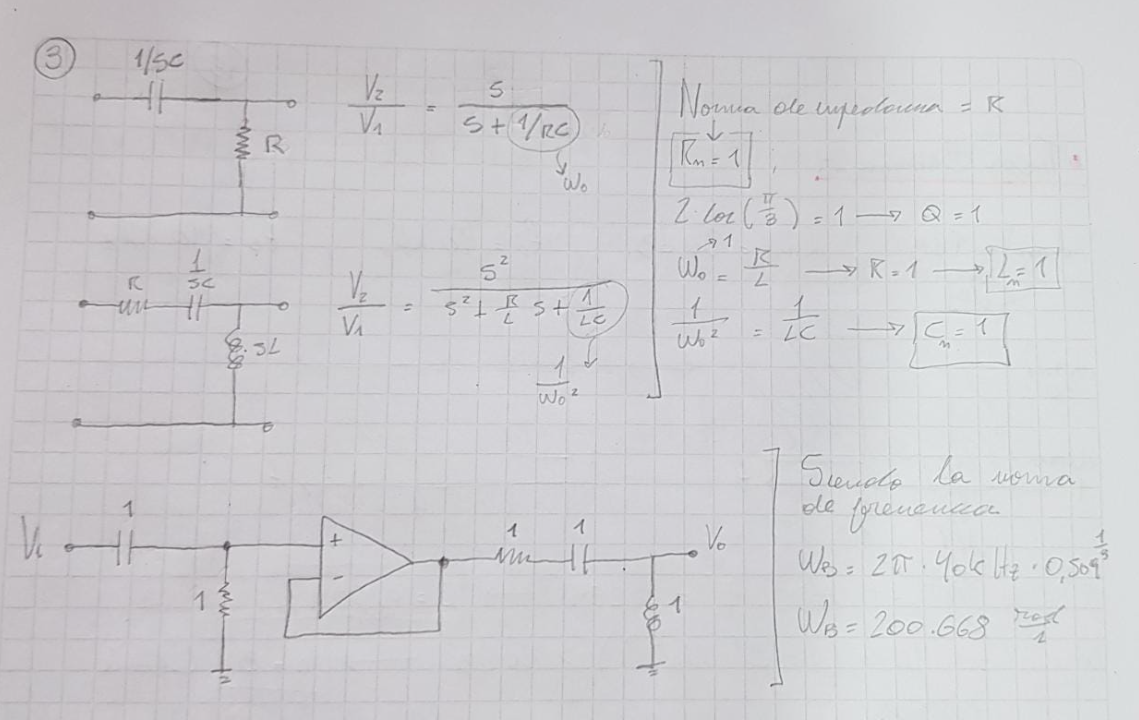 3
1/SC
V2/V1 = S/(S + 1/RC)
R
ω0
R 1/SC
V2/V1 = S²/(S² + R/L S + 1/LC)
SL
1/ω0²
Norma de impedancia = R
Rn = 1
2 cos(π/3) = 1 → Q = 1
1
ω0 = R/L → R = 1 → Ln = 1
1/ω0² = 1/LC → Cn = 1
Vi 1
1
+
-
1 1
Vo
1
Siendo la norma
de frecuencia
ωB = 2π · 40kHz · 0,509^1/3
ωB = 200.668 rad/1